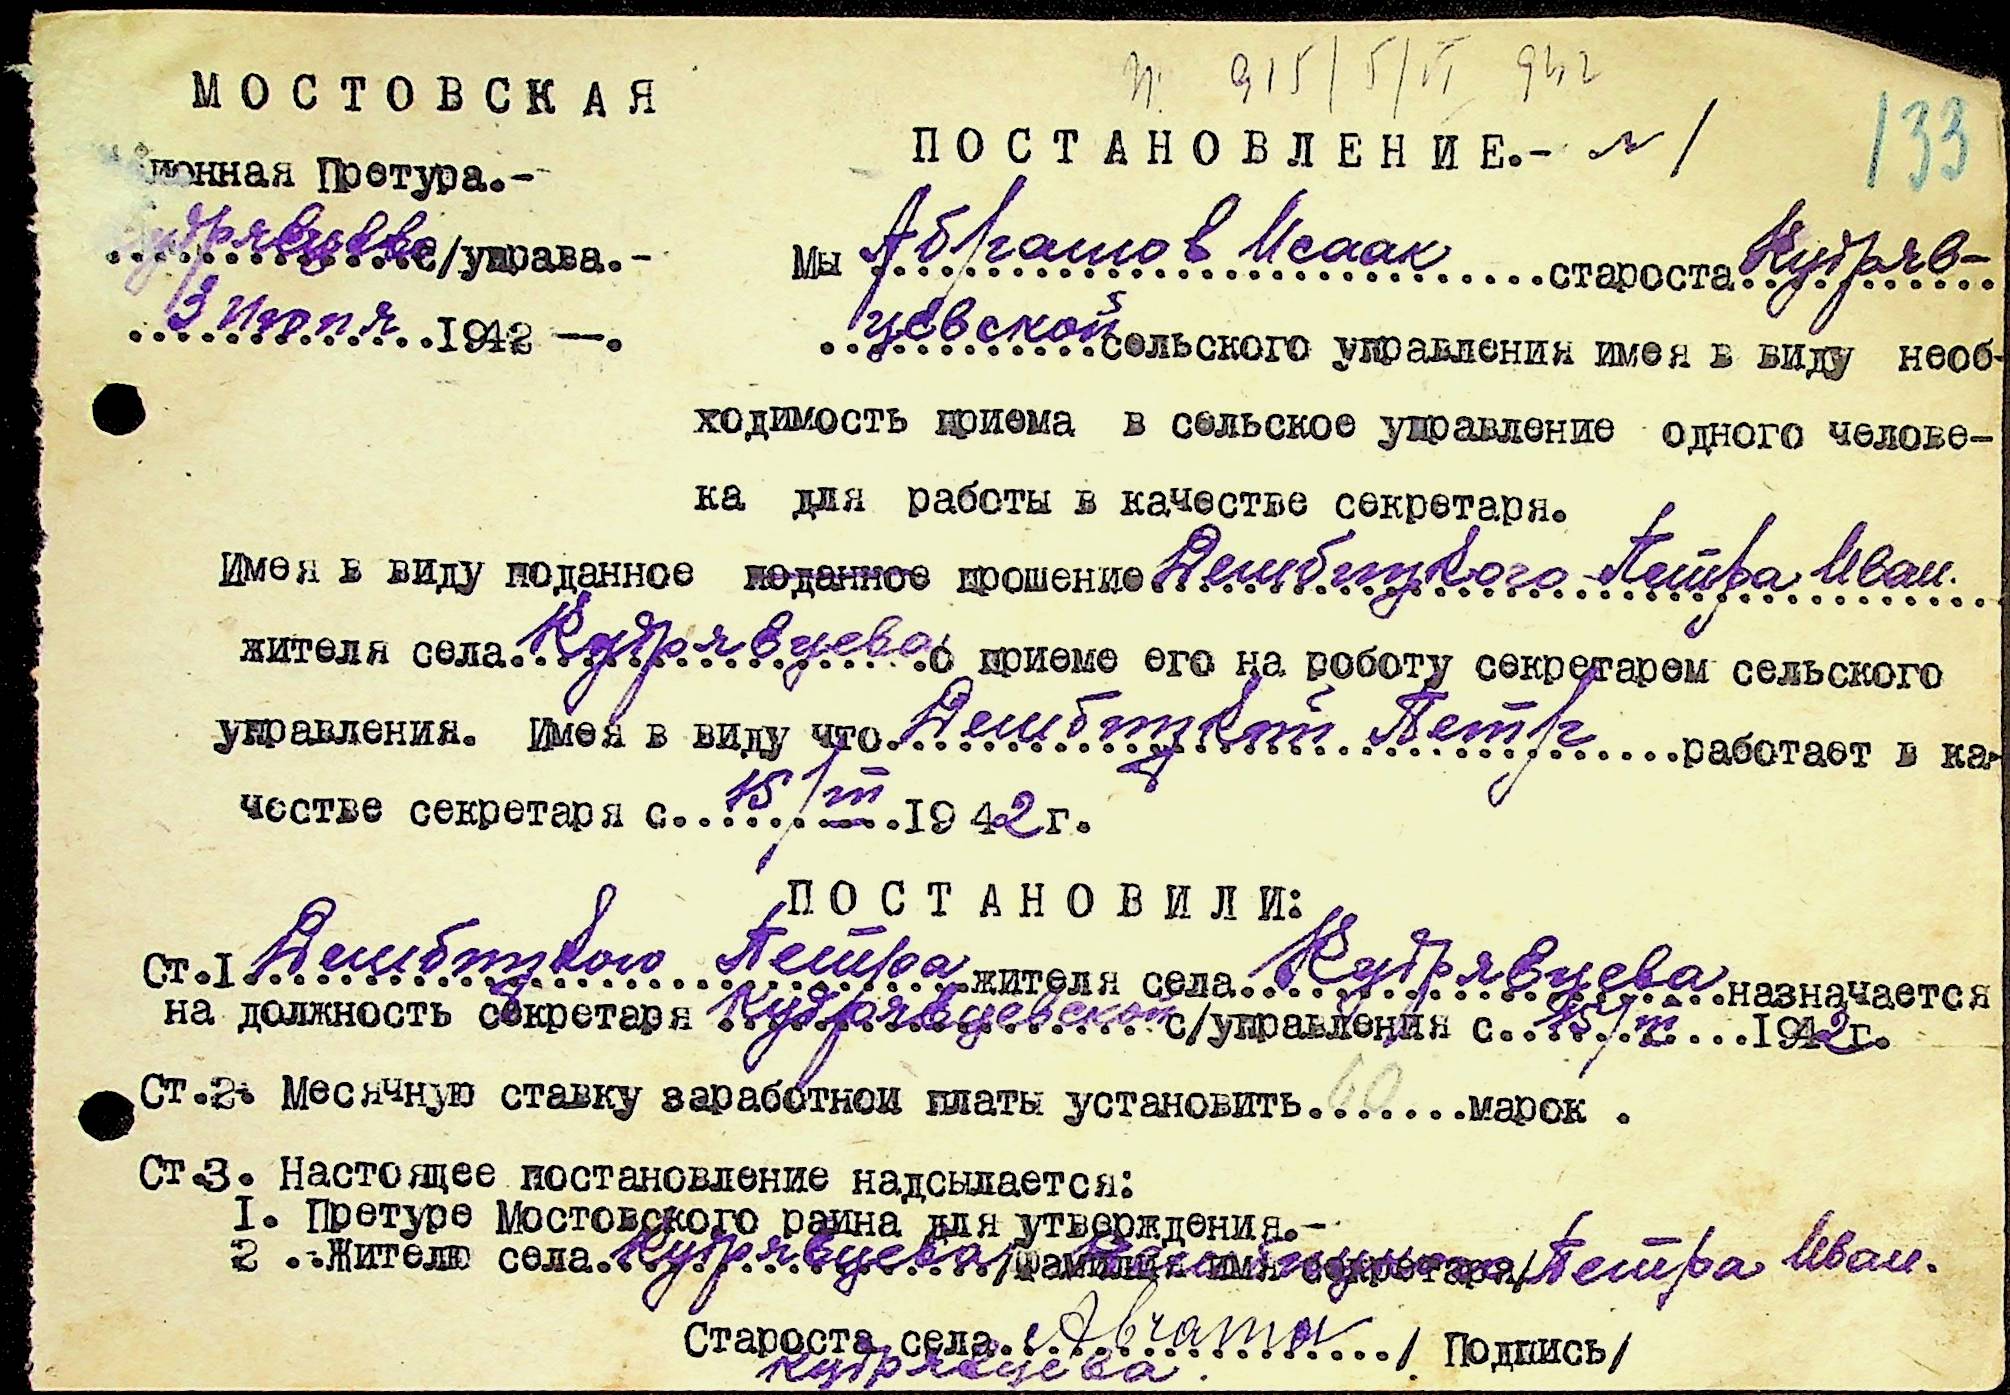 N. 915/5/VI 942
133
МОСТОВСКАЯ
ионная Претура.-
Кудрявцевс/управа.-
3 Июня 1942 —.
ПОСТАНОВЛЕНИЕ.- № 1
Мы Абрамов Исаак староста Кудряв-
цевской сельского управления имея в виду необ-
ходимость приема в сельское управление одного челове-
ка для работы в качестве секретаря.
Имея в виду поданное поданное прошение Дембицкого Петра Иван.
жителя села Кудрявцева о приеме его на роботу секретарем сельского
управления. Имея в виду что Дембицкий Петр работает в ка-
честве секретаря с 15/III 1942 г.
ПОСТАНОВИЛИ:
Ст.1 Дембицкого Петра жителя села Кудрявцева назначается
на должность секретаря Кудрявцевской с/управления с 15/III 1942г.
Ст.2. Месячную ставку заработнои платы установить 60 марок .
Ст.3. Настоящее постановление надсылается:
I. Претуре Мостовского раина для утверждения.-
2 .. Жителю села Кудрявцева /Фамилия имя секретаря/ Петра Иван.
Староста села / Подпись/
Кудрявцева.